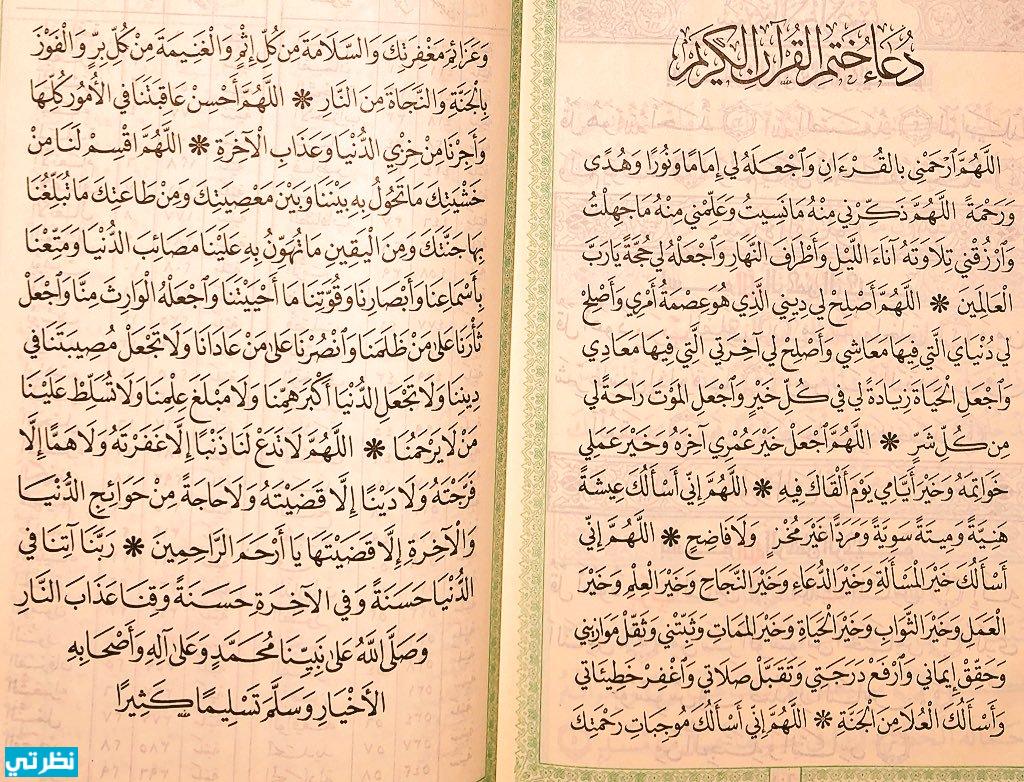 دُعَاءُ خَتْمِ الْقُرْآنِ الْكَرِيمِ
اللَّهُمَّ ٱرْحَمْنِي بالقُرْءَانِ وَٱجْعَلهُ لِي إِمَامًا وَنُورًا وَهُدًى
وَرَحْمَةً اللَّهُمَّ ذَكِّرْنِي مِنْهُ مَانَسِيتُ وَعَلِّمْنِي مِنْهُ مَاجَهِلْتُ
وَٱرْزُقْنِي تِلَاوَتَهُ آنَاءَ اللَّيْلِ وَأَطْرَافَ النَّهَارِ وَٱجْعَلْهُ لِي حُجَّةً يَارَبَّ
الْعَالَمِينَ * اللَّهُمَّ أَصْلِحْ لِي دِينِي الَّذِي هُوَ عِصْمَةُ أَمْرِي وَأَصْلِحْ
لِي دُنْيَايَ الَّتِي فِيهَا مَعَاشِي وَأَصْلِحْ لِي آخِرَتِي الَّتِي فِيهَا مَعَادِي
وَٱجْعَلِ الْحَيَاةَ زِيَادَةً لِي فِي كُلِّ خَيْرٍ وَٱجْعَلِ الْمَوْتَ رَاحَةً لِي
مِن كُلِّ شَرٍّ * اللَّهُمَّ ٱجْعَلْ خَيْرَ عُمْرِي آخِرَهُ وَخَيْرَ عَمَلِي
خَوَاتِمَهُ وَخَيْرَ أَيَّامِي يَوْمَ أَلْقَاكَ فِيهِ * اللَّهُمَّ إِنِّي أَسْأَلُكَ عِيشَةً
هَنِيَّةً وَمِيتَةً سَوِيَّةً وَمَرَدًّا غَيْرَ مُخْزٍ وَلَا فَاضِحٍ * اللَّهُمَّ إِنِّي
أَسْأَلُكَ خَيْرَ الْمَسْأَلَةِ وَخَيْرَ الدُّعَاءِ وَخَيْرَ النَّجَاحِ وَخَيْرَ الْعِلْمِ وَخَيْرَ
الْعَمَلِ وَخَيْرَ الثَّوَابِ وَخَيْرَ الْحَيَاةِ وَخَيْرَ الْمَمَاتِ وَثَبِّتْنِي وَثَقِّلْ مَوَازِينِي
وَحَقِّقْ إِيمَانِي وَٱرْفَعْ دَرَجَتِي وَتَقَبَّلْ صَلَاتِي وَٱغْفِرْ خَطِيئَاتِي
وَأَسْأَلُكَ الْعُلَا مِنَ الْجَنَّةِ * اللَّهُمَّ إِنِّي أَسْأَلُكَ مُوجِبَاتِ رَحْمَتِكَ
وَعَزَائِمَ مَغْفِرَتِكَ وَالسَّلَامَةَ مِن كُلِّ إِثْمٍ وَالْغَنِيمَةَ مِنْ كُلِّ بِرٍّ وَالْفَوْزَ
بِالْجَنَّةِ وَالنَّجَاةَ مِنَ النَّارِ * اللَّهُمَّ أَحْسِنْ عَاقِبَتَنَا فِي الْأُمُورِ كُلِّهَا
وَأَجِرْنَا مِنْ خِزْيِ الدُّنْيَا وَعَذَابِ الْآخِرَةِ * اللَّهُمَّ اقْسِمْ لَنَا مِنْ
خَشْيَتِكَ مَا تَحُولُ بِهِ بَيْنَنَا وَبَيْنَ مَعْصِيَتِكَ وَمِنْ طَاعَتِكَ مَا تُبَلِّغُنَا
بِهَا جَنَّتَكَ وَمِنَ الْيَقِينِ مَا تُهَوِّنُ بِهِ عَلَيْنَا مَصَائِبَ الدُّنْيَا وَمَتِّعْنَا
بِأَسْمَاعِنَا وَأَبْصَارِنَا وَقُوَّتِنَا مَا أَحْيَيْتَنَا وَٱجْعَلْهُ الْوَارِثَ مِنَّا وَٱجْعَلْ
ثَأْرَنَا عَلَى مَنْ ظَلَمَنَا وَٱنْصُرْنَا عَلَى مَنْ عَادَانَا وَلَا تَجْعَلْ مُصِيبَتَنَا فِي
دِينِنَا وَلَا تَجْعَلِ الدُّنْيَا أَكْبَرَ هَمِّنَا وَلَا مَبْلَغَ عِلْمِنَا وَلَا تُسَلِّطْ عَلَيْنَا
مَنْ لَا يَرْحَمُنَا * اللَّهُمَّ لَا تَدَعْ لَنَا ذَنْبًا إِلَّا غَفَرْتَهُ وَلَا هَمًّا إِلَّا
فَرَّجْتَهُ وَلَا دَيْنًا إِلَّا قَضَيْتَهُ وَلَا حَاجَةً مِنْ حَوَائِجِ الدُّنْيَا
وَالْآخِرَةِ إِلَّا قَضَيْتَهَا يَا أَرْحَمَ الرَّاحِمِينَ * رَبَّنَا آتِنَا فِي
الدُّنْيَا حَسَنَةً وَفِي الآخِرَةِ حَسَنَةً وَقِنَا عَذَابَ النَّارِ
وَصَلَّى اللَّهُ عَلَى نَبِيِّنَا مُحَمَّدٍ وَعَلَى آلِهِ وَأَصْحَابِهِ
الأَخْيَارِ وَسَلَّمَ تَسْلِيمًا كَثِيرًا
نظرتي